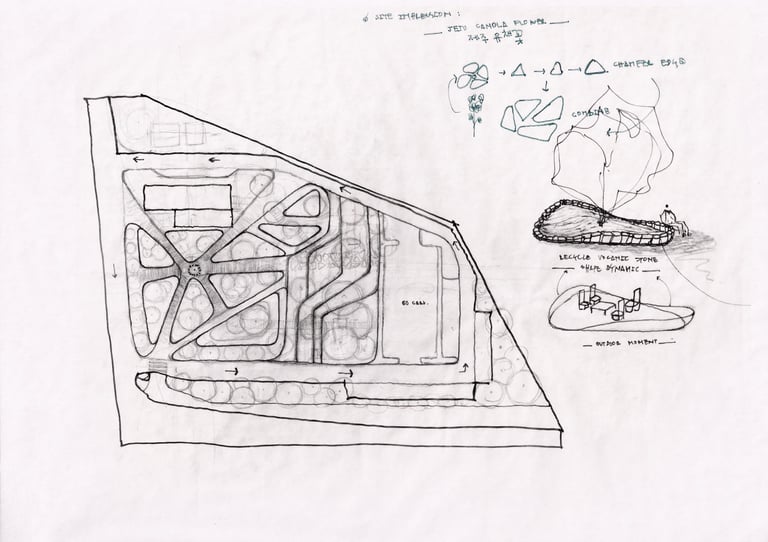 SITE IMMERSION :
JEJU CANOLA FLOWER
제주 유채꽃
CHAMFER EDGE
COMBINE
60 CARS.
RECYCLE VOLCANIC STONE
SHAPE DYNAMIC
OUTDOOR MOMENT